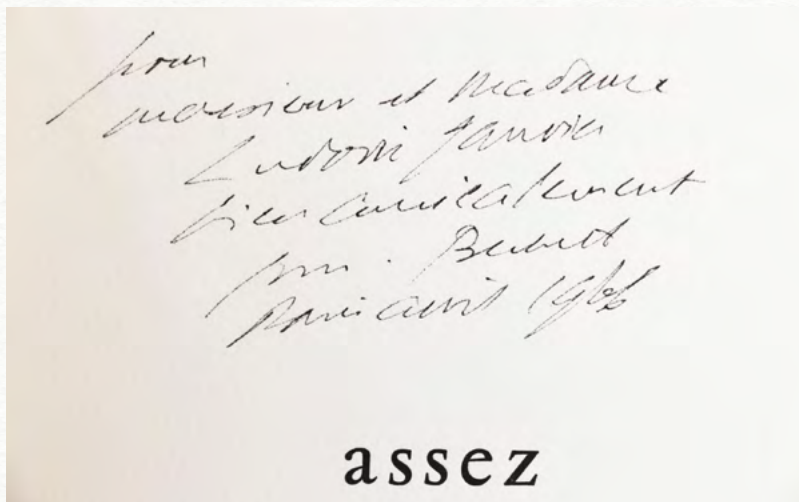 pour
monsieur et madame
Ludovic Janvier
bien amicalement
Sam. Beckett
Paris avril 1966
assez